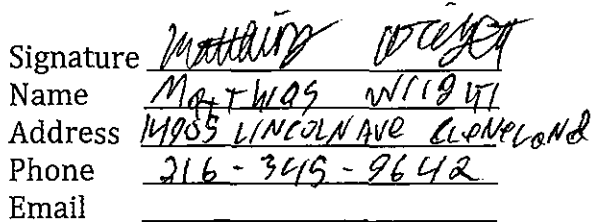 Signature
Name Matthias Wright
Address 14905 LINCOLN AVE CLEVELAND
Phone 216-345-9642
Email